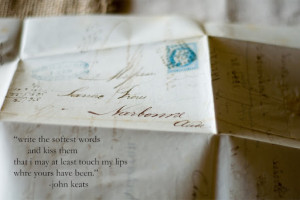 Narbonne
Aude
"write the softest words
and kiss them
that i may at least touch my lips
whre yours have been."
-john keats